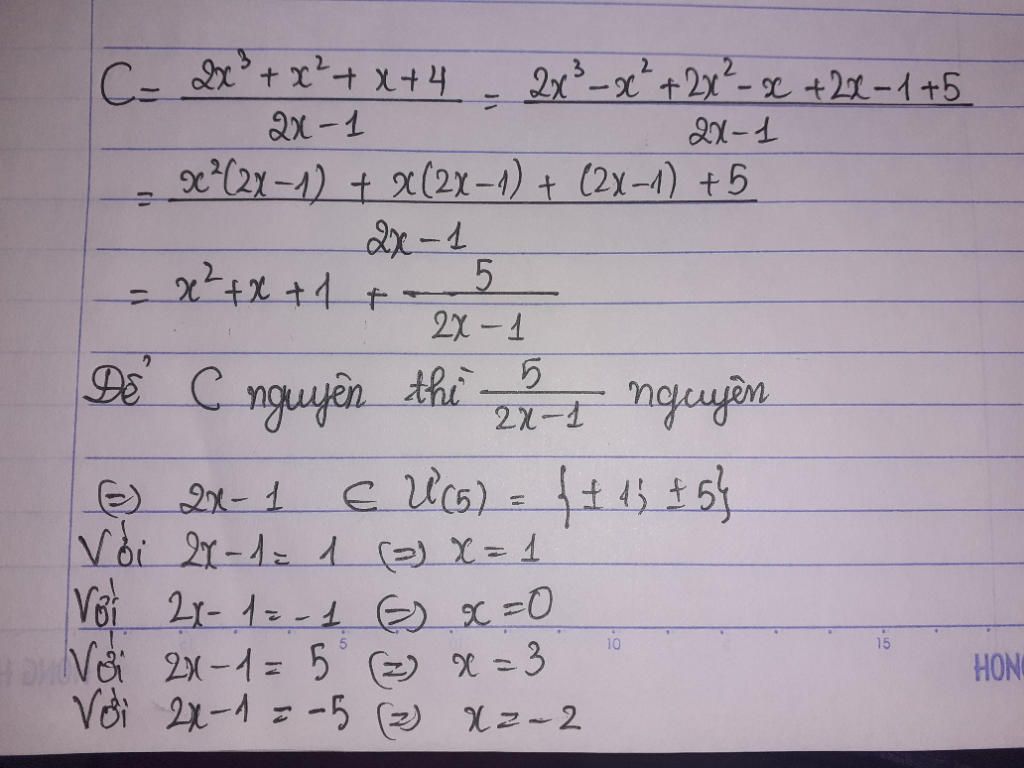 C = (2x³ + x² + x + 4)/(2x - 1) = (2x³ - x² + 2x² - x + 2x - 1 + 5)/(2x - 1)
= (x²(2x - 1) + x(2x - 1) + (2x - 1) + 5)/(2x - 1)
= x² + x + 1 + 5/(2x - 1)
Để C nguyên thì 5/(2x - 1) nguyên
(=) 2x - 1 ∈ Ư(5) = {± 1; ± 5}
Với 2x - 1 = 1 (=) x = 1
Với 2x - 1 = - 1 (=) x = 0
5 10 15
Với 2x - 1 = 5 (=) x = 3
HONG
Với 2x - 1 = -5 (=) x = - 2